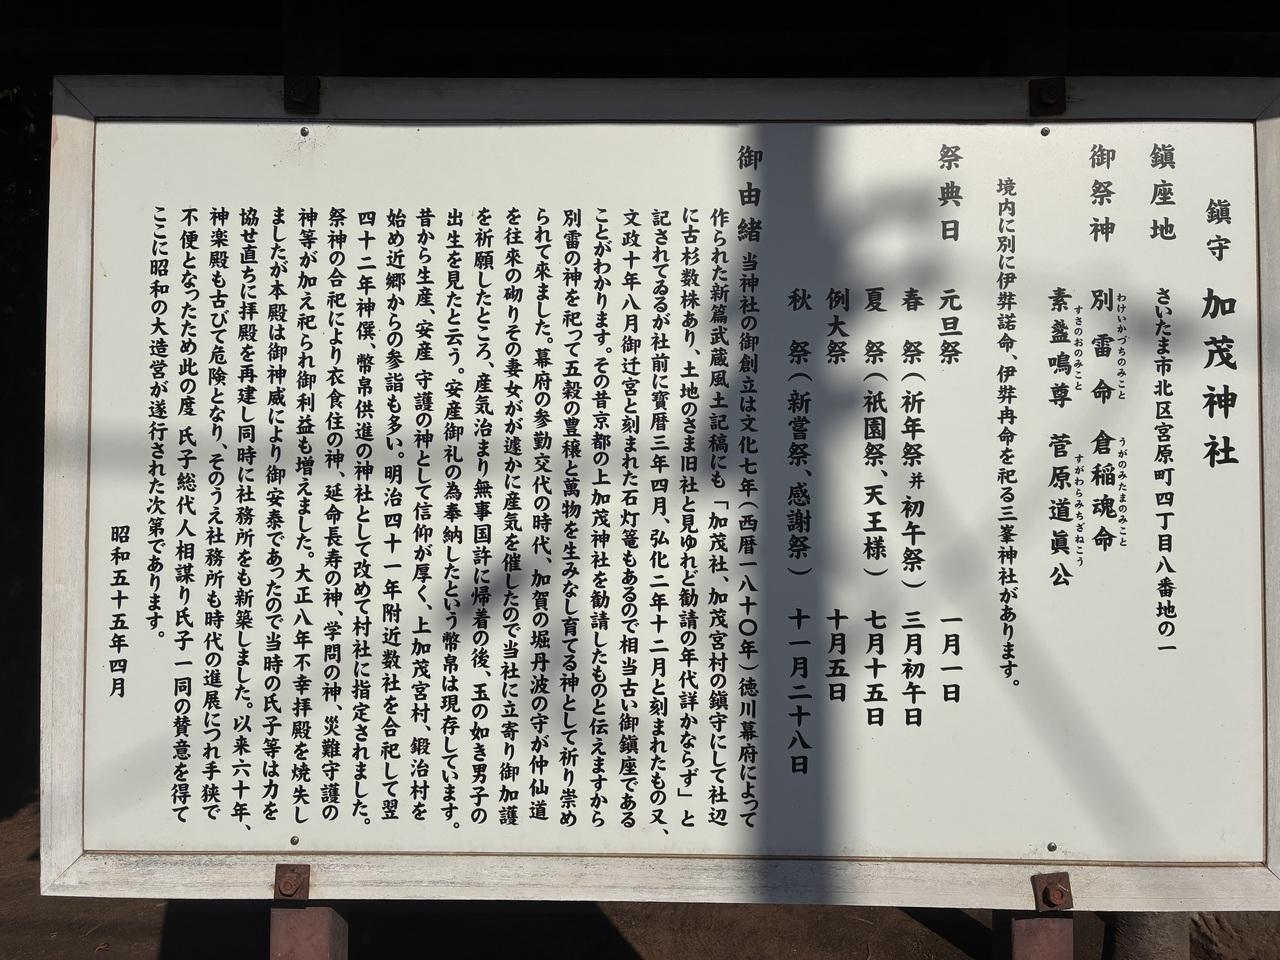 鎮守 加茂神社
鎮座地 さいたま市北区宮原町四丁目八番地の一
御祭神 別雷命 倉稲魂命
わけいかづちのみこと うがのみたまのみこと
素盞鳴尊 菅原道眞公
すさのおのみこと すがわらみちざねこう
境内に別に伊弉諾命、伊弉冉命を祀る三峯神社があります。
祭典日 元旦祭 一月一日
春 祭(祈年祭并初午祭) 三月初午日
夏 祭(祇園祭、天王様) 七月十五日
例大祭 十月五日
秋 祭(新嘗祭、感謝祭) 十一月二十八日
御由緒 当神社の御創立は文化七年(西暦一八十〇年)徳川幕府によって
作られた新篇武蔵風土記稿にも「加茂社、加茂宮村の鎮守にして社辺
に古杉数株あり、土地のさま旧社と見ゆれど勧請の年代詳かならず」と
記されてゐるが社前に寳暦三年四月、弘化二年十二月と刻まれたもの又、
文政十年八月御迁宮と刻まれた石灯篭もあるので相当古い御鎮座である
ことがわかります。その昔京都の上加茂神社を勧請したものと伝えますから
別雷の神を祀って五穀の豊穣と萬物を生みなし育てる神として祈り崇め
られて来ました。幕府の参勤交代の時代、加賀の堀丹波の守が仲仙道
を往来の砌りその妻女がが遽かに産気を催したので当社に立寄り御加護
を祈願したところ、産気治まり無事国許に帰着の後、玉の如き男子の
出生を見たと云う。安産御礼の為奉納したという幣帛は現存しています。
昔から生産、安産 守護の神として信仰が厚く、上加茂宮村、鍛治村を
始め近郷からの参詣も多い。明治四十一年附近数社を合祀して翌
四十二年神饌、幣帛供進の神社として改めて村社に指定されました。
祭神の合祀により衣食住の神、延命長寿の神、学問の神、災難守護の
神等が加え祀られ御利益も増えました。大正八年不幸拝殿を焼失し
ましたが本殿は御神威により御安泰であったので当時の氏子等は力を
協せ直ちに拝殿を再建し同時に社務所をも新築しました。以来六十年、
神楽殿も古びて危険となり、そのうえ社務所も時代の進展につれ手狭で
不便となったため此の度 氏子総代人相謀り氏子一同の賛意を得て
ここに昭和の大造営が遂行された次第であります。
昭和五十五年四月